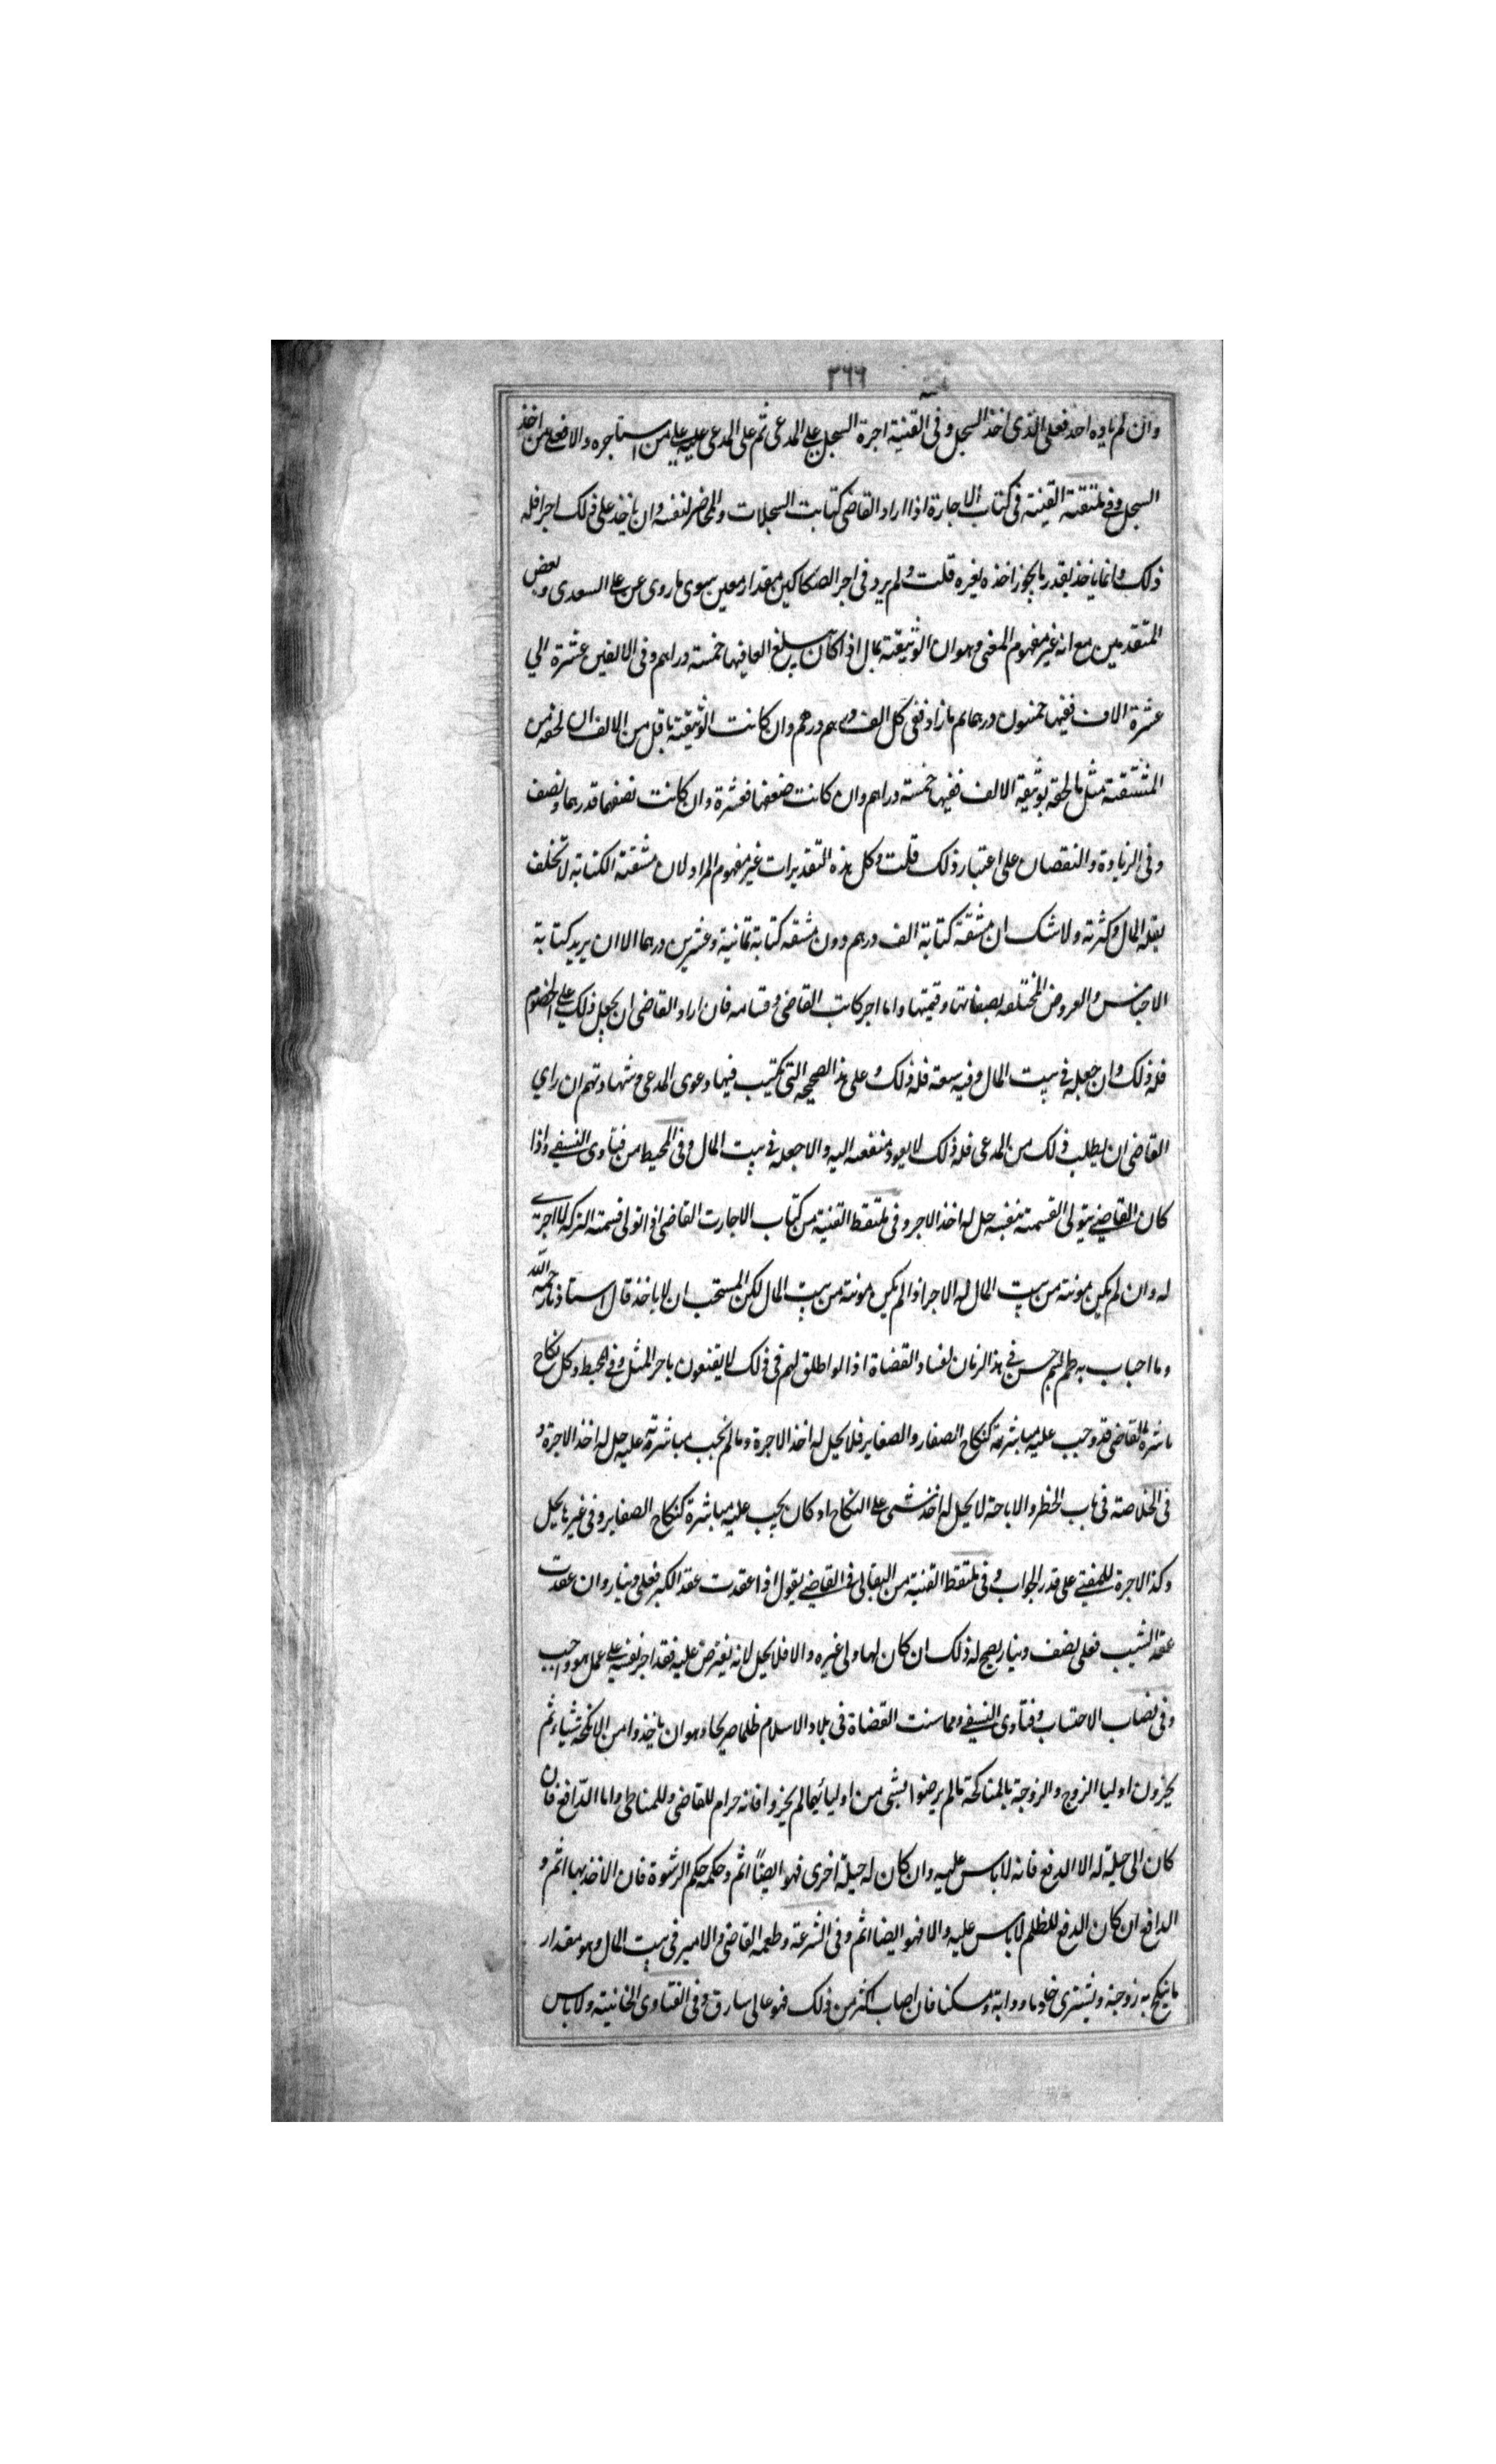 ٣٦٦
وان لم ياوه احد فعلى الذى اخذ السجل وفى القنية اجرة السجل على المدعى ثم على المدعى عليه على من استاجره والا فعلى من اخذ
السجل وفى القنية فى كتاب الاجارة اذا اراد القاضى كتابت السجلات والمحاضر لنفسه وان ياخذ على ذلك اجرا فله
ذلك وانما ياخذ بقدر ما يجوز اخذه لغيره قلت ولم يرد فى اجر الصكاكين مقدار معين سوى ما روى عن على السعدى وبعض
المتقدمين مع انه غير مفهوم المعنى وهو ان الوثيقة بمال اذا كان يبلغ الفا فيها خمسة دراهم وفى الالفين عشرة الي
عشرة الاف ففيها خمسون درهما ثم ما زاد ففى كل الف درهم درهم وان كانت الوثيقة باقل من الالف ان لحقه من
المشقة مثل ما لحقه بوثيقة الالف ففيها خمسة دراهم وان كانت ضعفها فعشرة وان كانت نصفها فدرهما ونصف
وفى الزيادة والنقصان على اعتبار ذلك قلت وكل هذه التقديرات غير مفهوم المراد لان مشقة الكتابة لا تختلف
بقلة المال وكثرته ولا شك ان مشقة كتابة الف درهم دون مشقة كتابة ثمانية وعشرين درهما الا ان يريد كتابة
الاجناس والعروض المختلفه بصفاتها وقيمتها واما اجر كاتب القاضى وقسامه فان اراد القاضى ان يجعل ذلك على الخصوم
فله ذلك وان جعله فى بيت المال وفيه سعة فله ذلك وعلى هذا الصحيحه التى تكتب فيها دعوى المدعى وشهادتهم ان راي
القاضى ان يطلب ذلك من المدعى فله ذلك لا يعود منفعه اليه والا جعله فى بيت المال وفى المحيط من فتاوى النسفى واذا
كان القاضى يتولى القسمة بنفسه حل له اخذ الاجر وفى ملتقط القنية من كتاب الاجارت القاضى اذا تولى قسمة التركه لا اجرى
له وان لم يكن مونته من بيت المال له الاجر اذا لم يكن مونته من بيت المال لكن المستحب ان لا ياخذ قال استاذنا رحمه الله
وما اجاب به ظهم حسن فى هذا الزمان لفساد القضاة اذا لو اطلق لهم فى ذلك لا يقنعون باجر المثل وفى المحيط وكل نكاح
باشره القاضى قد وجب عليه مباشرته كنكاح الصغار والصغاير فلا يحل له اخذ الاجرة وما لم يجب مباشرته عليه حل له اخذ الاجرة و
فى الخلاصة فى باب الحظر والاباحة لا يحل له اخذ شى على النكاح او كان يجب عليه مباشرة كنكاح الصغاير وفى غير ها يحل
وكذا الاجرة للمفتى على قدر الجواب وفى ملتقط القنية من البقالى فى القاضى يقول اذا عقدت عقد البكر فعلى دينار وان عقدت
عقد الثيب فعلى نصف دينار يصح له ذلك ان كان لها ولى غيره والا فلا يحل لانه يفترض عليه فقد اجر نفسه على عمل هو واجب
وفى نصاب الاحتساب وفتاوى النسفى ومما سنت القضاة فى بلاد الاسلام ظلما صريحا وهو ان ياخذوا من الانكحة شيئا ثم
يجزون اوليا الزوج والزوجة بالمناكحة مالم يرضوا بشى من اوليائهما لم يجزوا فانه حرام للقاضى وللمناكح واما الدافع فان
كان الى حيلة له الا الدفع فانه لا باس عليه وان كان له حيلة اخرى فهو ايضًا اثم وحكمه حكم الرشوة فان الاخذ بها اثم و
الدافع ان كان الدفع للظلم لا باس عليه والا فهو ايضا اثم وفى الشرعة وطعمه القاضى والامير فى بيت المال وهو مقدار
ما ينكح به زوجة ويشترى خادما ودابة ومسكنا فان اصاب اكثر من ذلك فهو غالى سارق وفى الفتاوى الخانية ولا باس